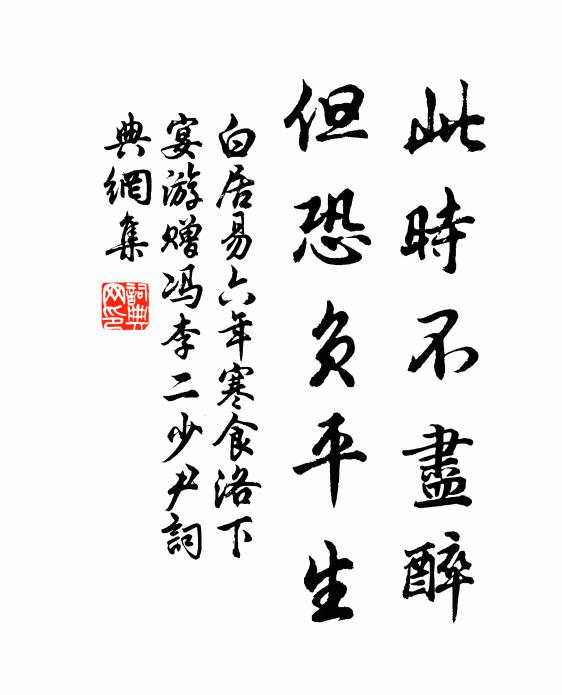 此時不盡醉
但恐負平生
白居易六年寒食洛下
宴游贈冯李二少尹詞
典網集
詞典网印